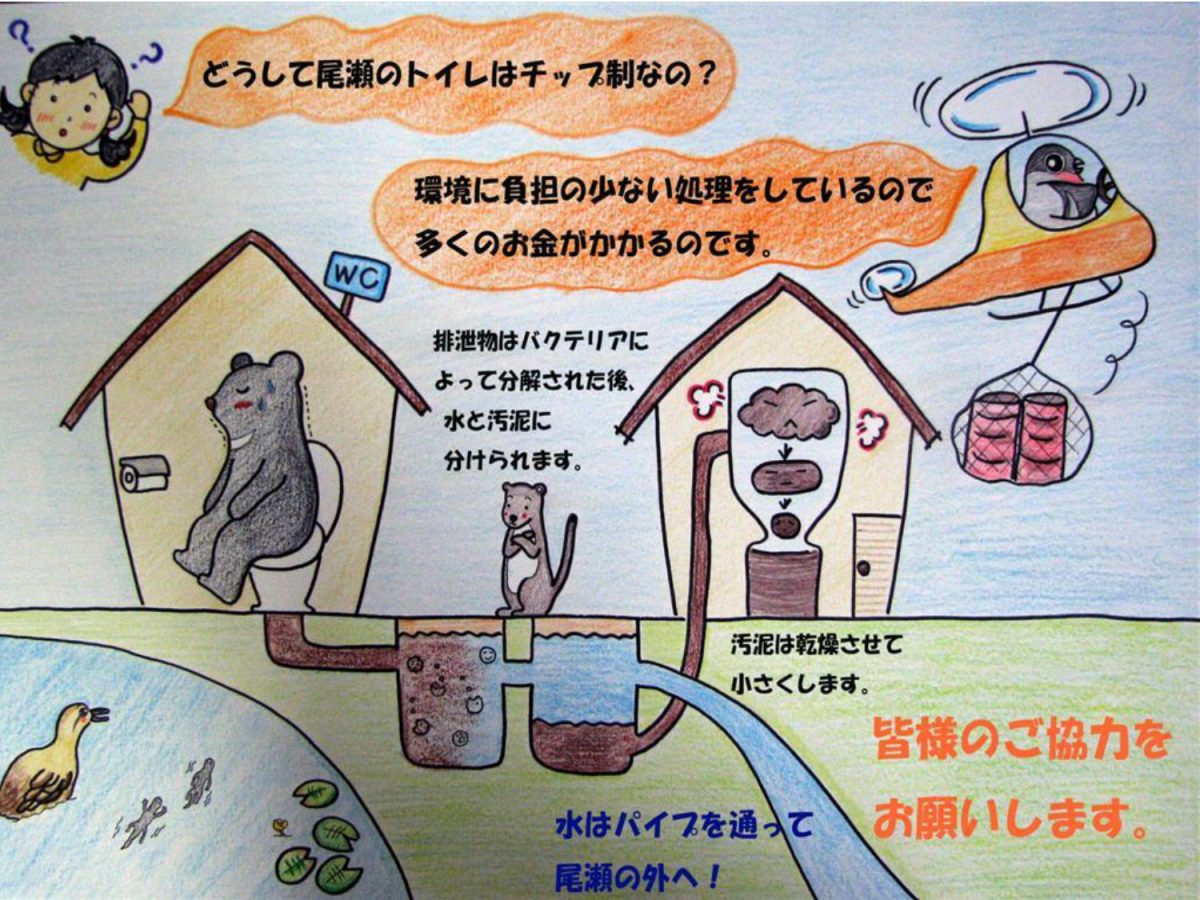 どうして尾瀬のトイレはチップ制なの?
環境に負担の少ない処理をしているので
多くのお金がかかるのです。
WC
排泄物はバクテリアに
よって分解された後、
水と汚泥に
分けられます。
汚泥は乾燥させて
小さくします。
皆様のご協力を
お願いします。
水はパイプを通って
尾瀬の外へ!